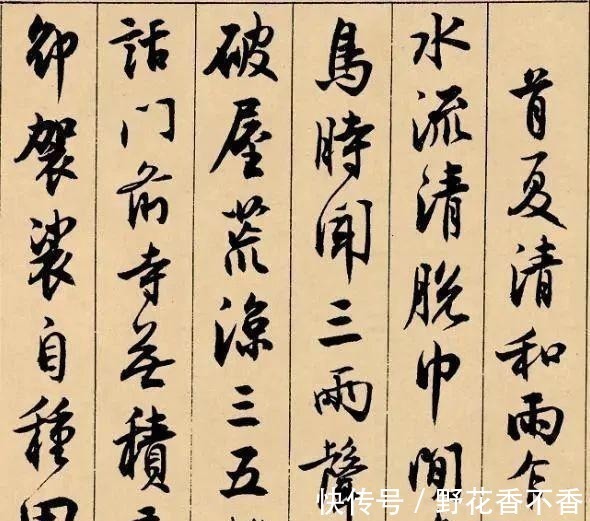 首夏清和雨
水流清脱巾闲
鳥時聞三兩聲
破屋荒涼三五
話门前寺無積
卸袈裟自種田
快传号 / 野花香不香